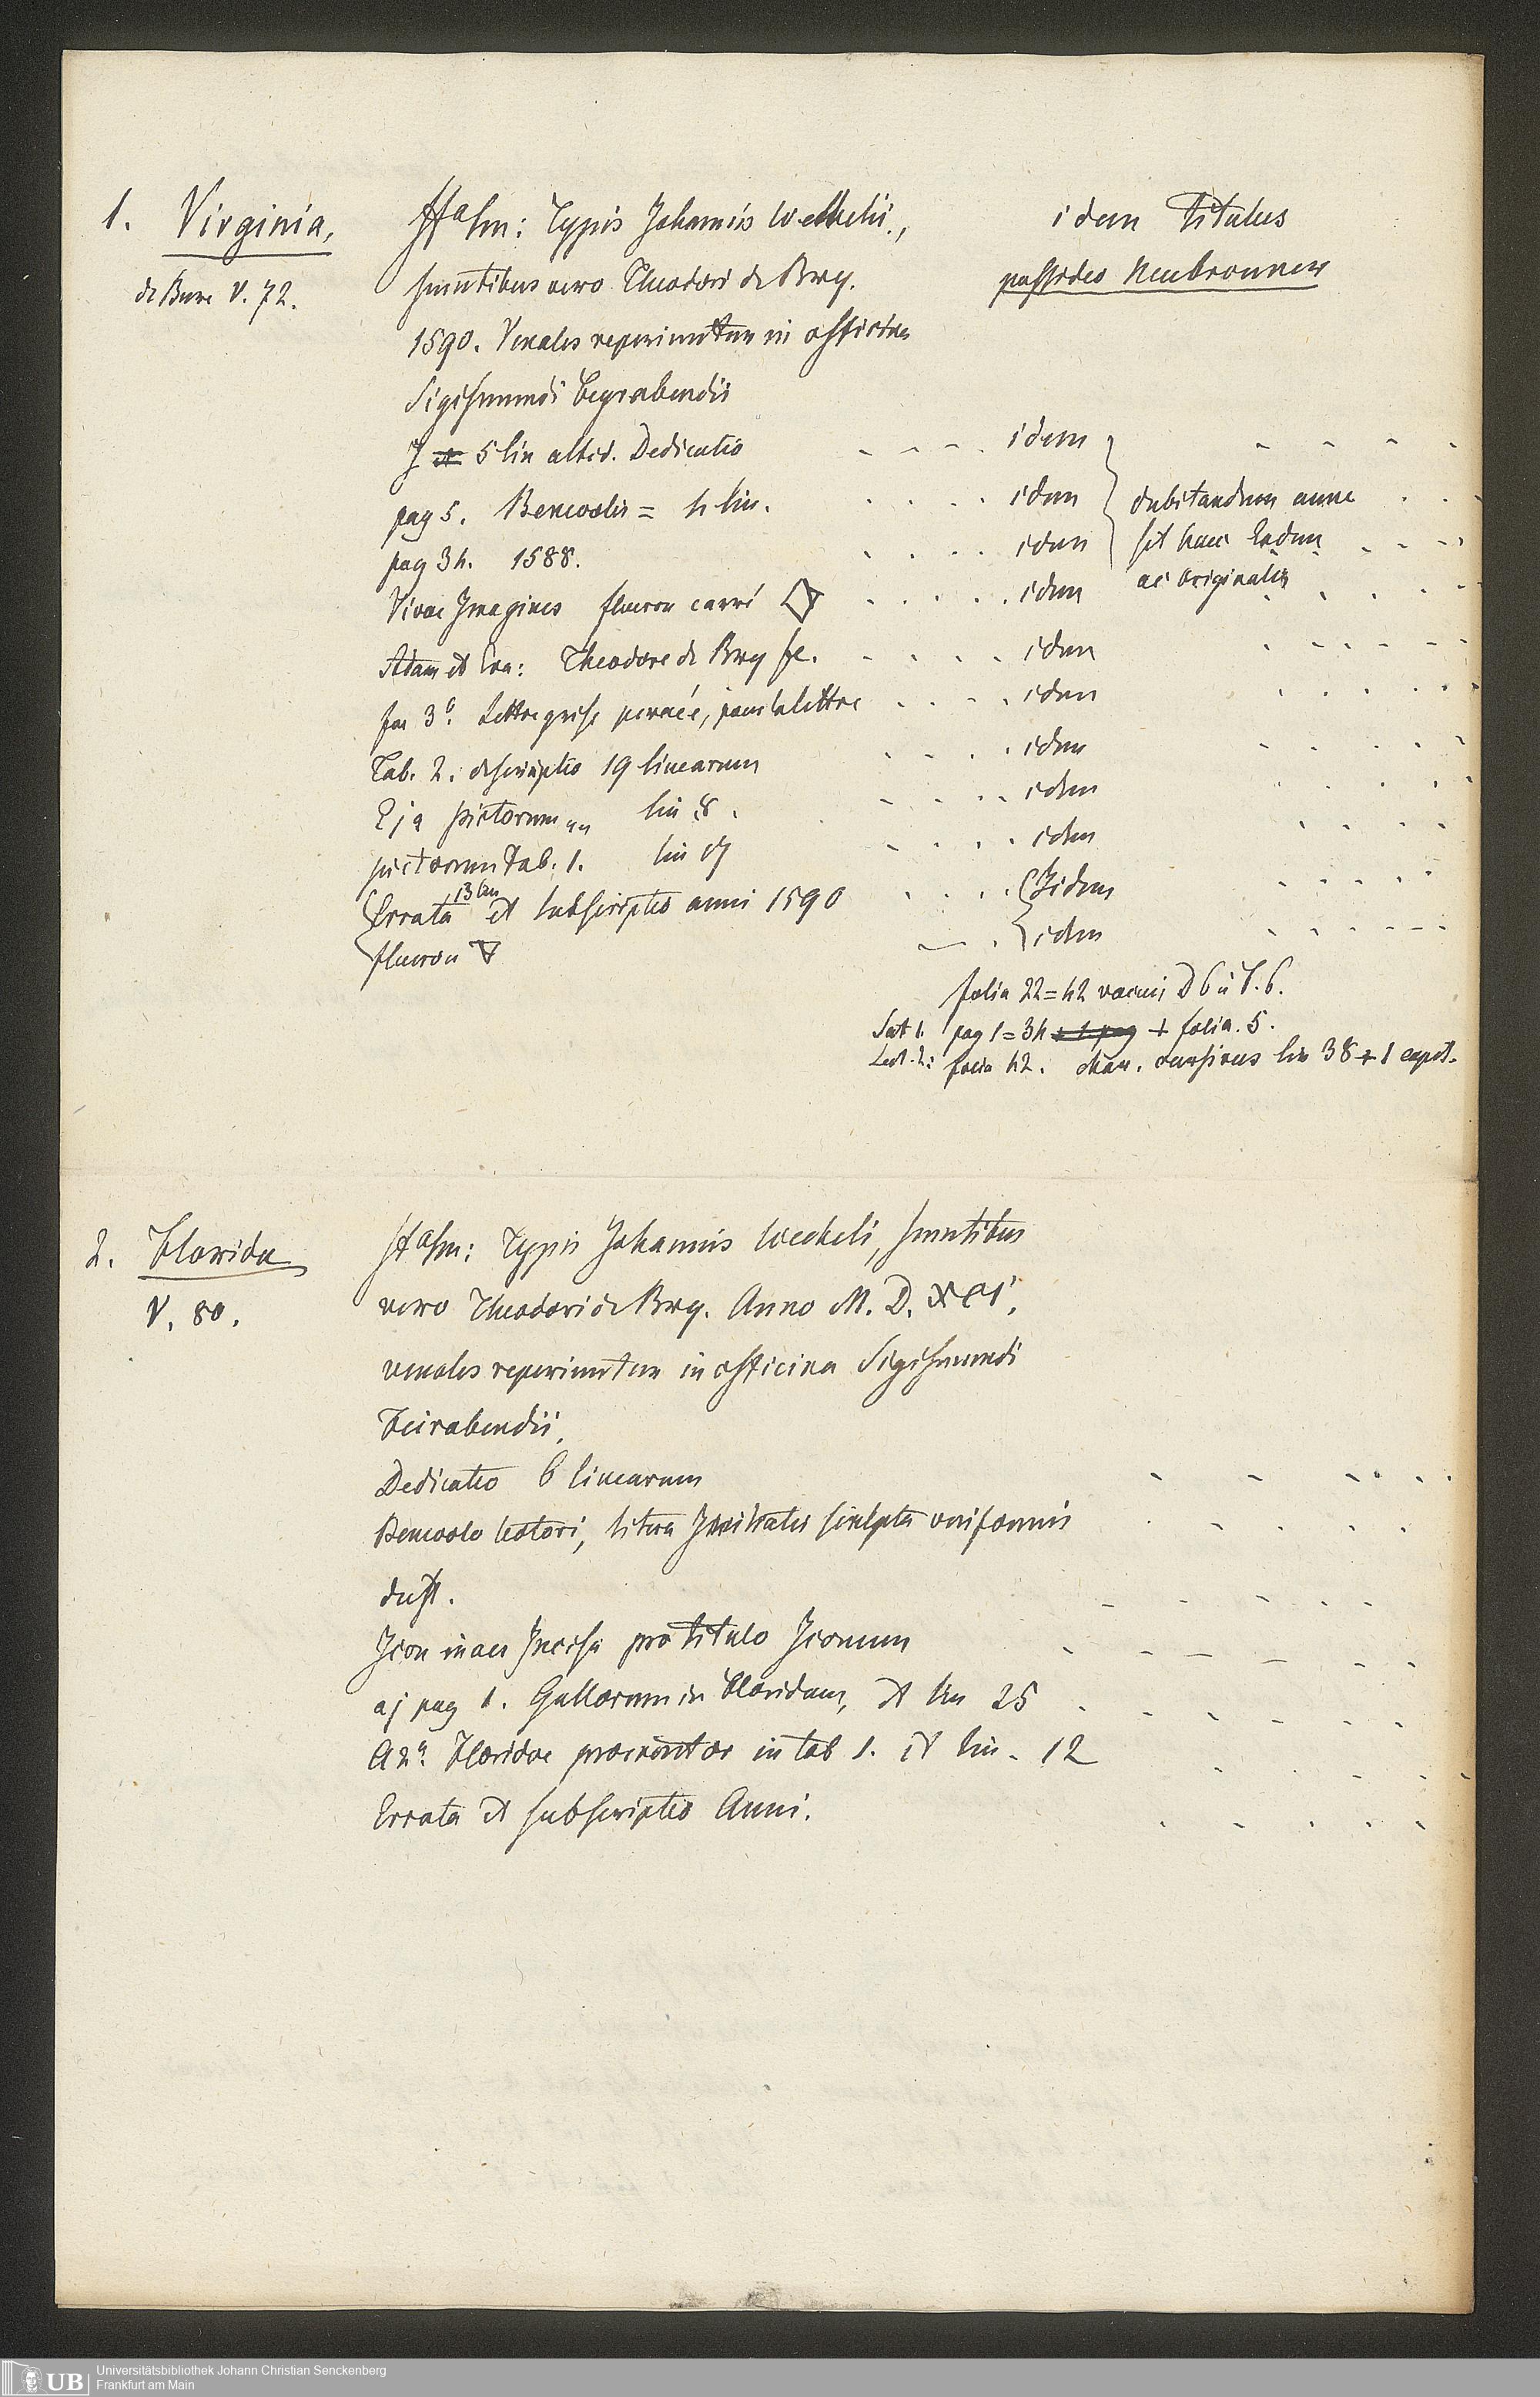 1. Virginia,
de Bure V. 72.
Typis Johannis Wechelii,
sumtibus vero Theodori de Bry.
1590. Venales reperiuntur in officina
Sigismundi
5 lin Dedicatio
pag 5. Benevolis = 4 lin.
pag 34. 1588.
Vivae Imagines fleuron carré
Adam et Eva: Theodore de Bry fe.
Lettre grise
Tab. 2. descriptio 19 linearum
pictorum lin 8.
pictorum Tab. 1. lin
13 lin
Errata et subscriptio anni 1590
fleuron
idem titulus
possideo Neubronner
idem
idem
idem
dubitandum anne
sit haec Eadem
ac originalis
idem
idem
idem
idem
idem
idem
idem
idem
folia 22 = 42 vacuis D6 u F. 6.
Sect 1. pag 1 = 34 + 1 pag + folia. 5.
Sect. 2: folia 42. char. cursivus lin 38 + 1 capit.
2. Florida
V. 80.
Typis Johannis Wecheli, sumtibus
vero Theodori de Bry. Anno M. D. XCI.
venales reperiuntur in officina Sigismundi
Feirabendii,
Dedicatio 6 linearum
Benevolo lectori, litera Initialis sculpta
Icon in aes Incisa pro titulo Iconum
aj pag 1. Gallorum in Floridam, et lin 25
a2a. Floridae in tab 1. et lin. 12
Errata et subscriptio Anni.
UB Universitätsbibliothek Johann Christian Senckenberg
Frankfurt am Main